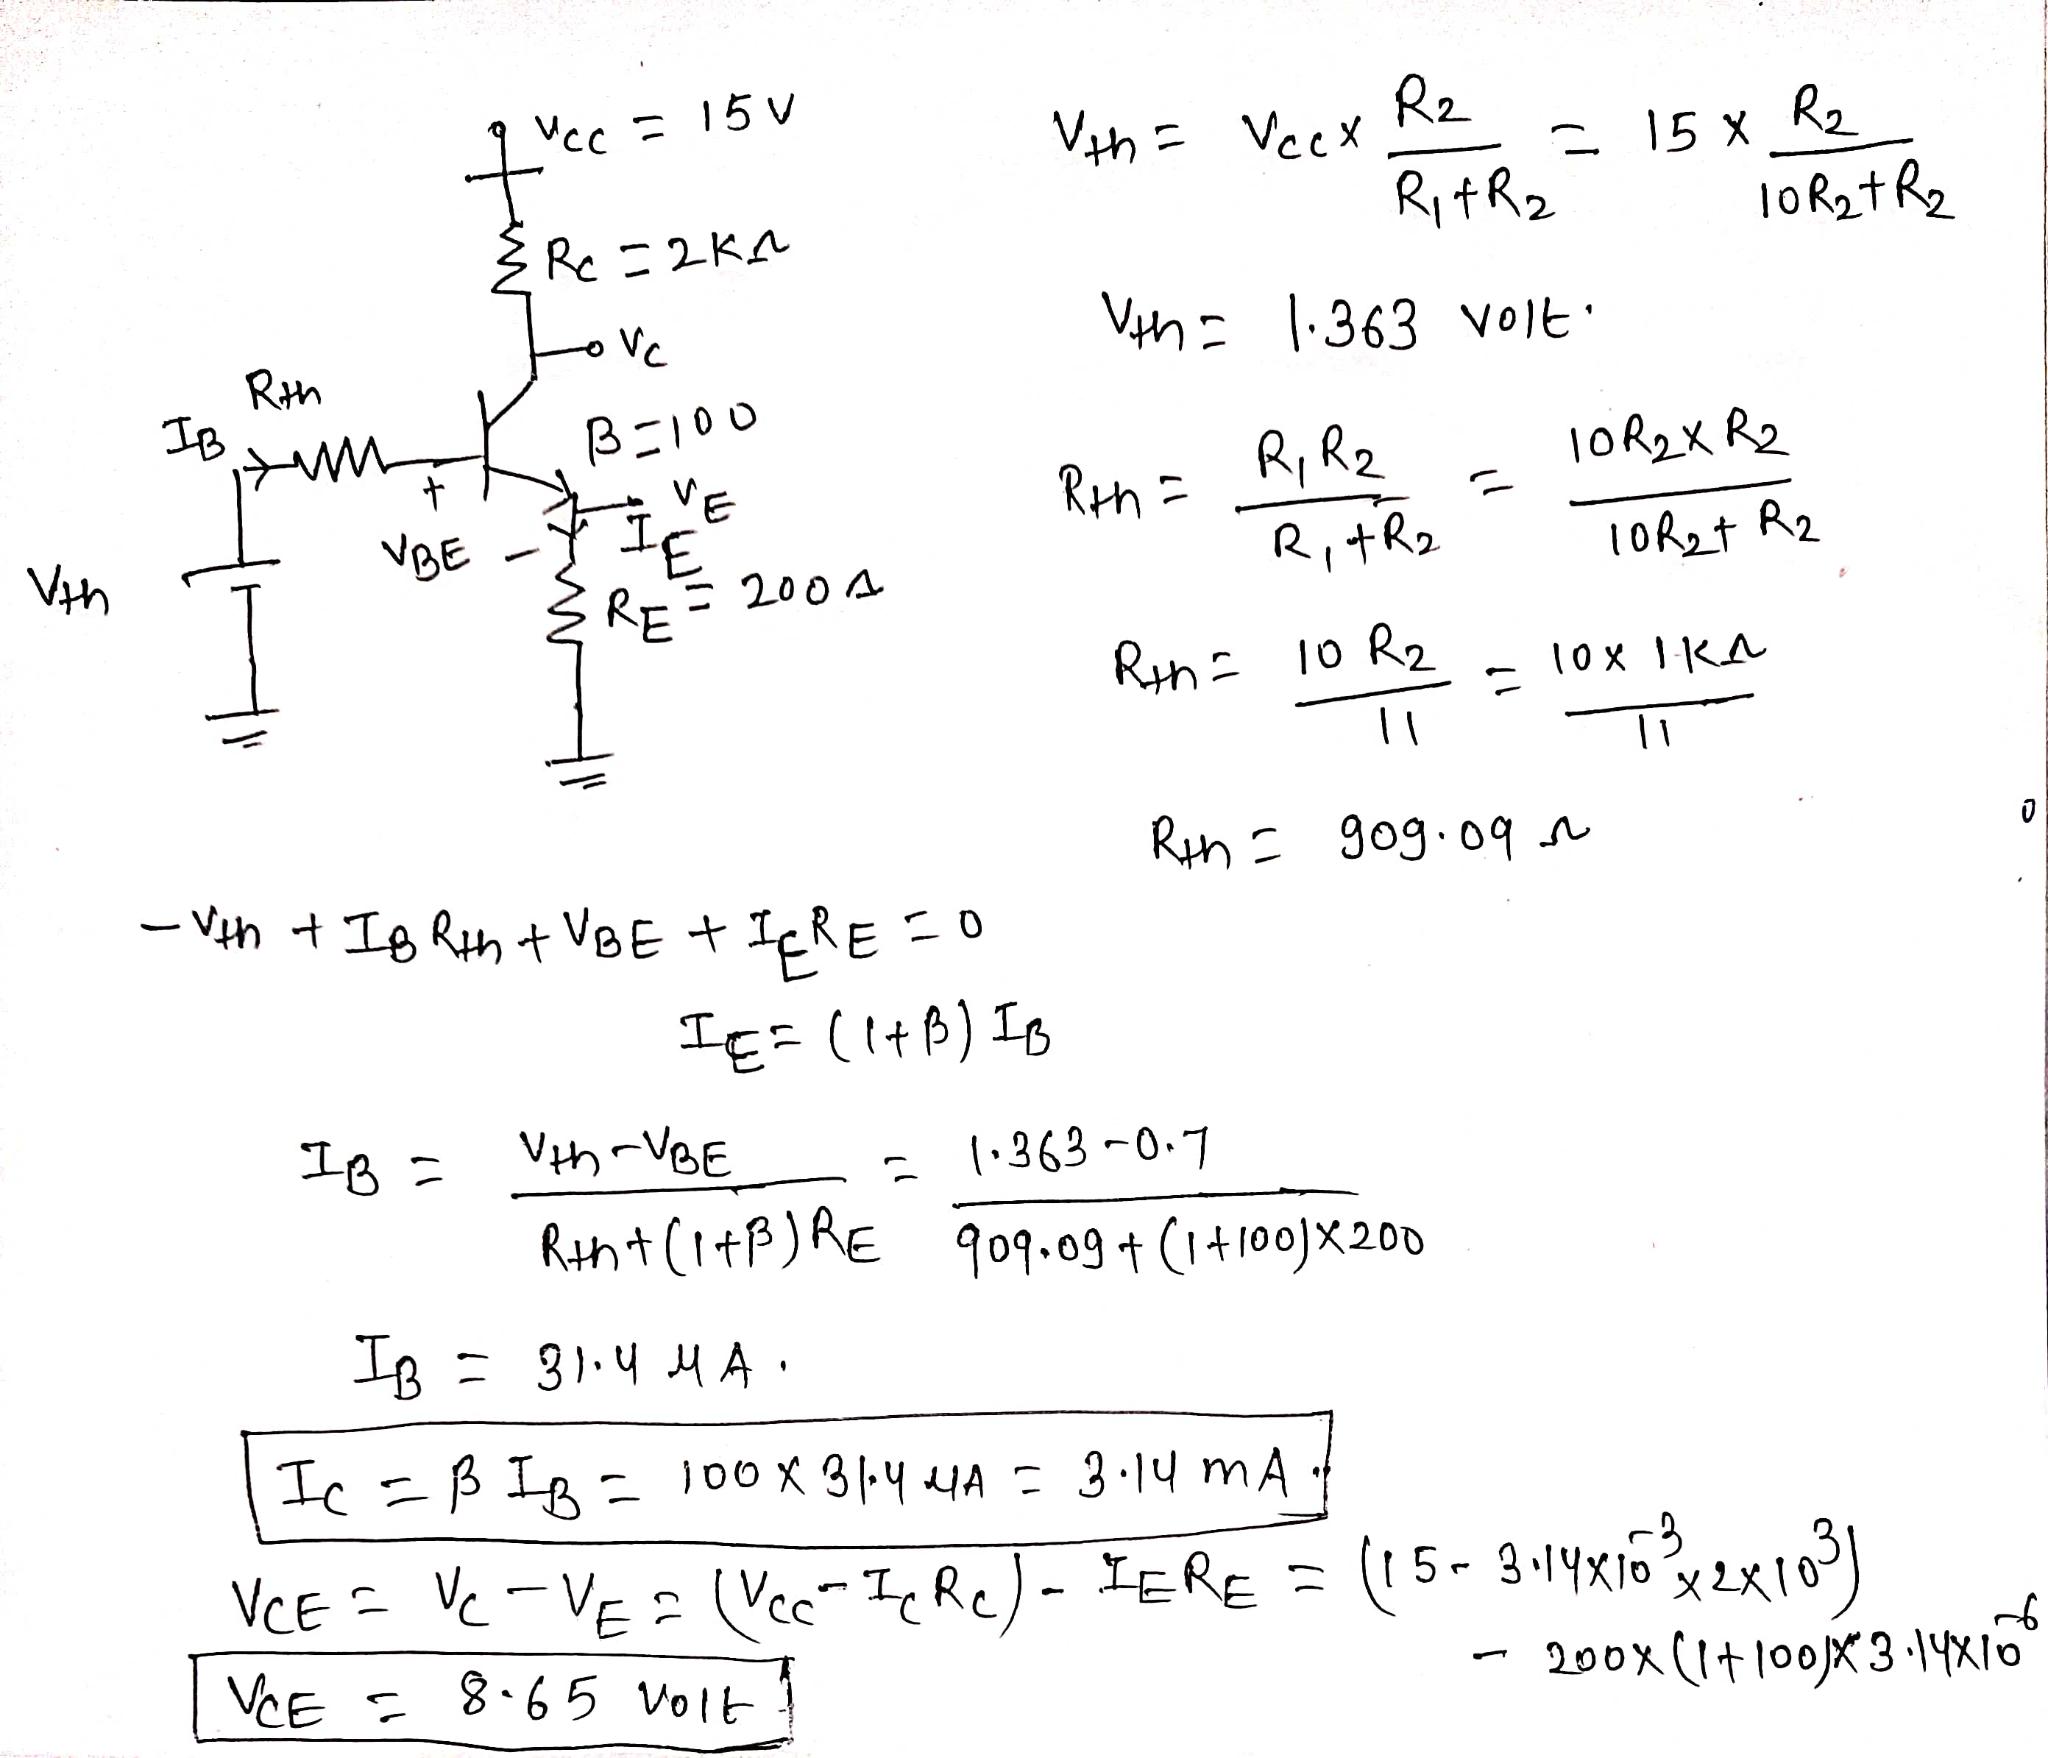 VCC = 15 V
RC = 2KΩ
VC
Rth
IB
β=100
+
VE
VBE -
IE
Vth
RE = 200Ω
Vth = VCC x R2 / R1+R2 = 15 x R2 / 10R2+R2
Vth = 1.363 volt.
Rth = R1R2 / R1+R2 = 10R2xR2 / 10R2+R2
Rth = 10 R2 / 11 = 10x1KΩ / 11
Rth = 909.09 Ω
-Vth + IB Rth + VBE + IERE = 0
IE = (1+β) IB
IB = Vth-VBE / Rth+(1+β)RE = 1.363-0.7 / 909.09+(1+100)x200
IB = 31.4 μA.
IC = β IB = 100 x 31.4 μA = 3.14 mA.
VCE = VC - VE = (VCC-ICRC) - IERE = (15 - 3.14x10^-3 x2x10^3)
- 200x(1+100)x3.14x10^-6
VCE = 8.65 Volt